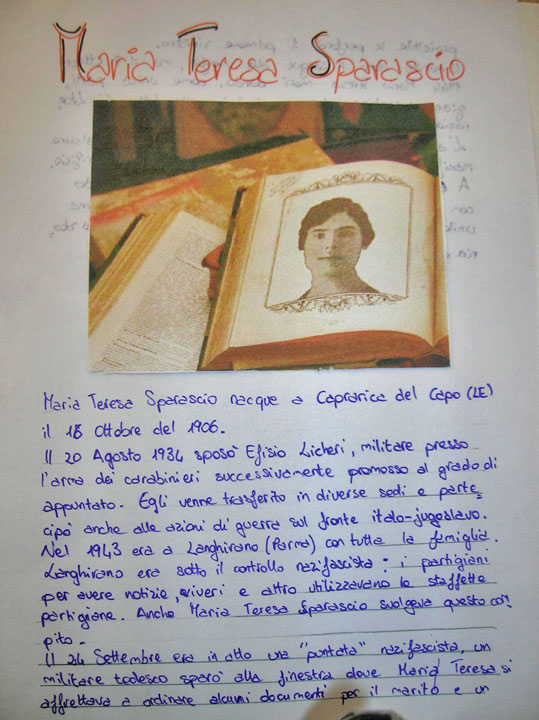 Maria Teresa Sparascio
Maria Teresa Sparascio nacque a Caprarica del Capo (LE)
il 18 Ottobre del 1906.
Il 20 Agosto 1934 sposò Efisio Licheri, militare presso
l'arma dei carabinieri successivamente promosso al grado di
appuntato. Egli venne trasferito in diverse sedi e parte
cipò anche alle azioni di guerra sul fronte italo-jugoslavo.
Nel 1943 era a Langhirano (Parma) con tutta la famiglia.
Langhirano era sotto il controllo nazifascista: i partigiani
per avere notizie, viveri e altro utilizzavano le staffette
partigiane. Anche Maria Teresa Sparascio svolgeva questo com
pito.
Il 24 Settembre era in atto una "puntata" nazifascista, un
militare tedesco sparò alla finestra dove Maria Teresa si
affrettava a ordinare alcuni documenti per il marito e un